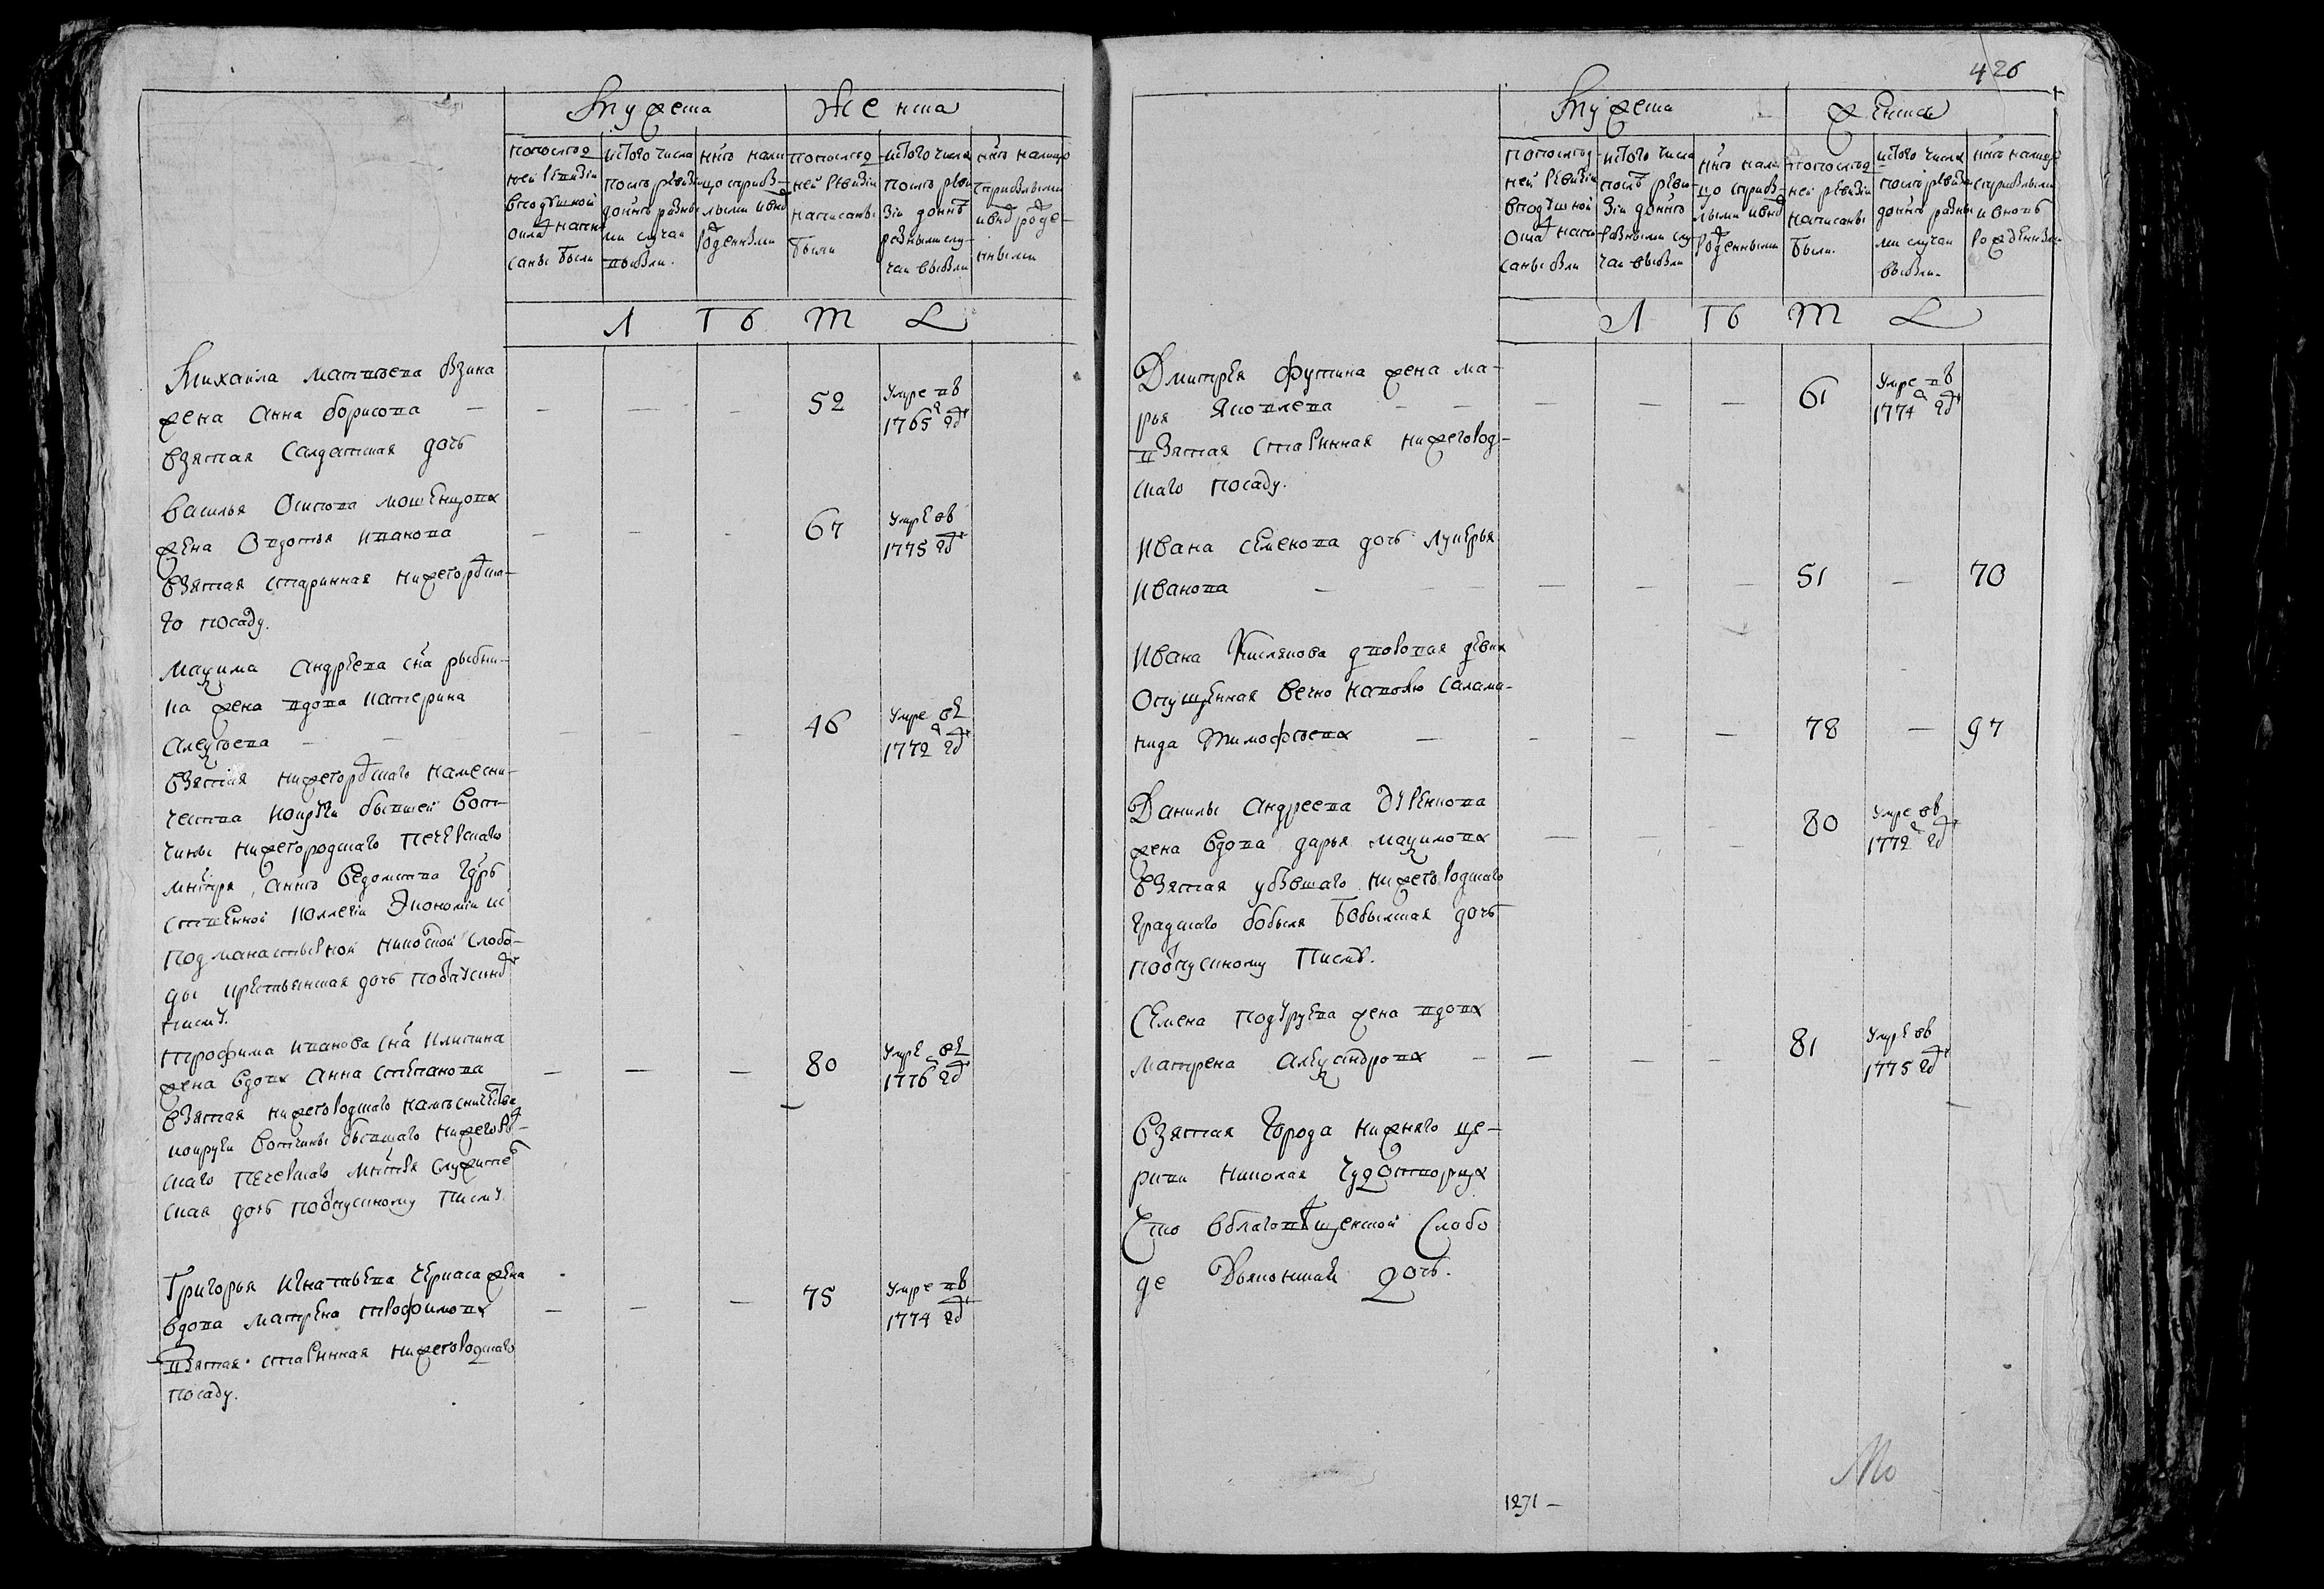 Мужеска
Женска
попослед
ней ревизии
вподушной
оклад напи
саны были
истого числа
после ревизи
доныне разны
ми случаи
выбыли.
ныне нали
цо сприбы
лыми ивнов
рожденными
попослед
ней ревизии
написаны
были
истого числа
после реви
зии доныне
разными слу
чаи выбыли
ныне налицо
сприбылыми
ивновь рожде
нными
Л ТБ М
Михаила Матвеева
жена Анна борисова —
взятая Салдатская дочь
— — — 52
Умре в
1765 году
василья Осипова мошенцова
жена Овдотья иванова
взятая старинная нижегородска
го посаду.
— — — 67
Умре в
1775 году
Маѯима андреева сна рыбни
ка жена вдова катерина
алеѯеева — —
— — — 46
Умре в
1772 году
взятая нижегородскаго намесни
чества округи бывшей вот
чины нижегородскаго печерскаго
мнстря, аныне ведомства гдрь
ственной коллегии Экономии ис
подманастырной слобо
ды крестьянская дочь поотпускному
писму.
трофима иванова сна Климина
жена вдова Анна степанова
— — — 80
Умре в
1776 году
взятая нижегородскаго наместничества
округи вотчины бывшаго нижегород
скаго печерскаго мнстря служитель
ская дочь поотпускному писму.
Григорья Игнатьева черкаса жена
вдова матрена трофимова
— — — 75
Умре в
1774 году
взятая старинная нижегородскаго
посаду.
426
Мужеска
женска
попослед
ней ревизии
вподушной
оклад напи
саны были
истого числа
после реви
зии доныне
разными слу
чаи выбыли
ныне нали
цо сприбы
лыми ивнов
рожденными
попослед
ней ревизии
написаны
были.
истого числа
после ревизи
доныне разны
ми случаи
выбыли.
ныне налицо
сприбылыми
ивновь
рожденными
Л ТБ М
Дмитрея Футина жена ма
рья Яковлева — —
— — — 61
Умре в
1774 году
взятая старинная нижегород
скаго посаду.
Ивана семенова дочь лукерья
Иванова —
— — — 51 — 70
Ивана Кислякова дворовая девка
отпущенная вечно наволю Салама
нида Тимофеева —
— — — 78 — 97
Данилы андреева
жена вдова дарья маѯимова
— — — 80
Умре в
1772 году
взятая убывшаго нижегородскаго
градскаго бобыля бобылская дочь
поотпускному писму.
Семена подуруева жена вдова
Матрена Алеѯандрова —
— — — 81
Умре в
1775 году
взятая города нижняго це
ркви николая чудотворца
что вблаговещенской слобо
де Дьяконская дочь.
1271 —